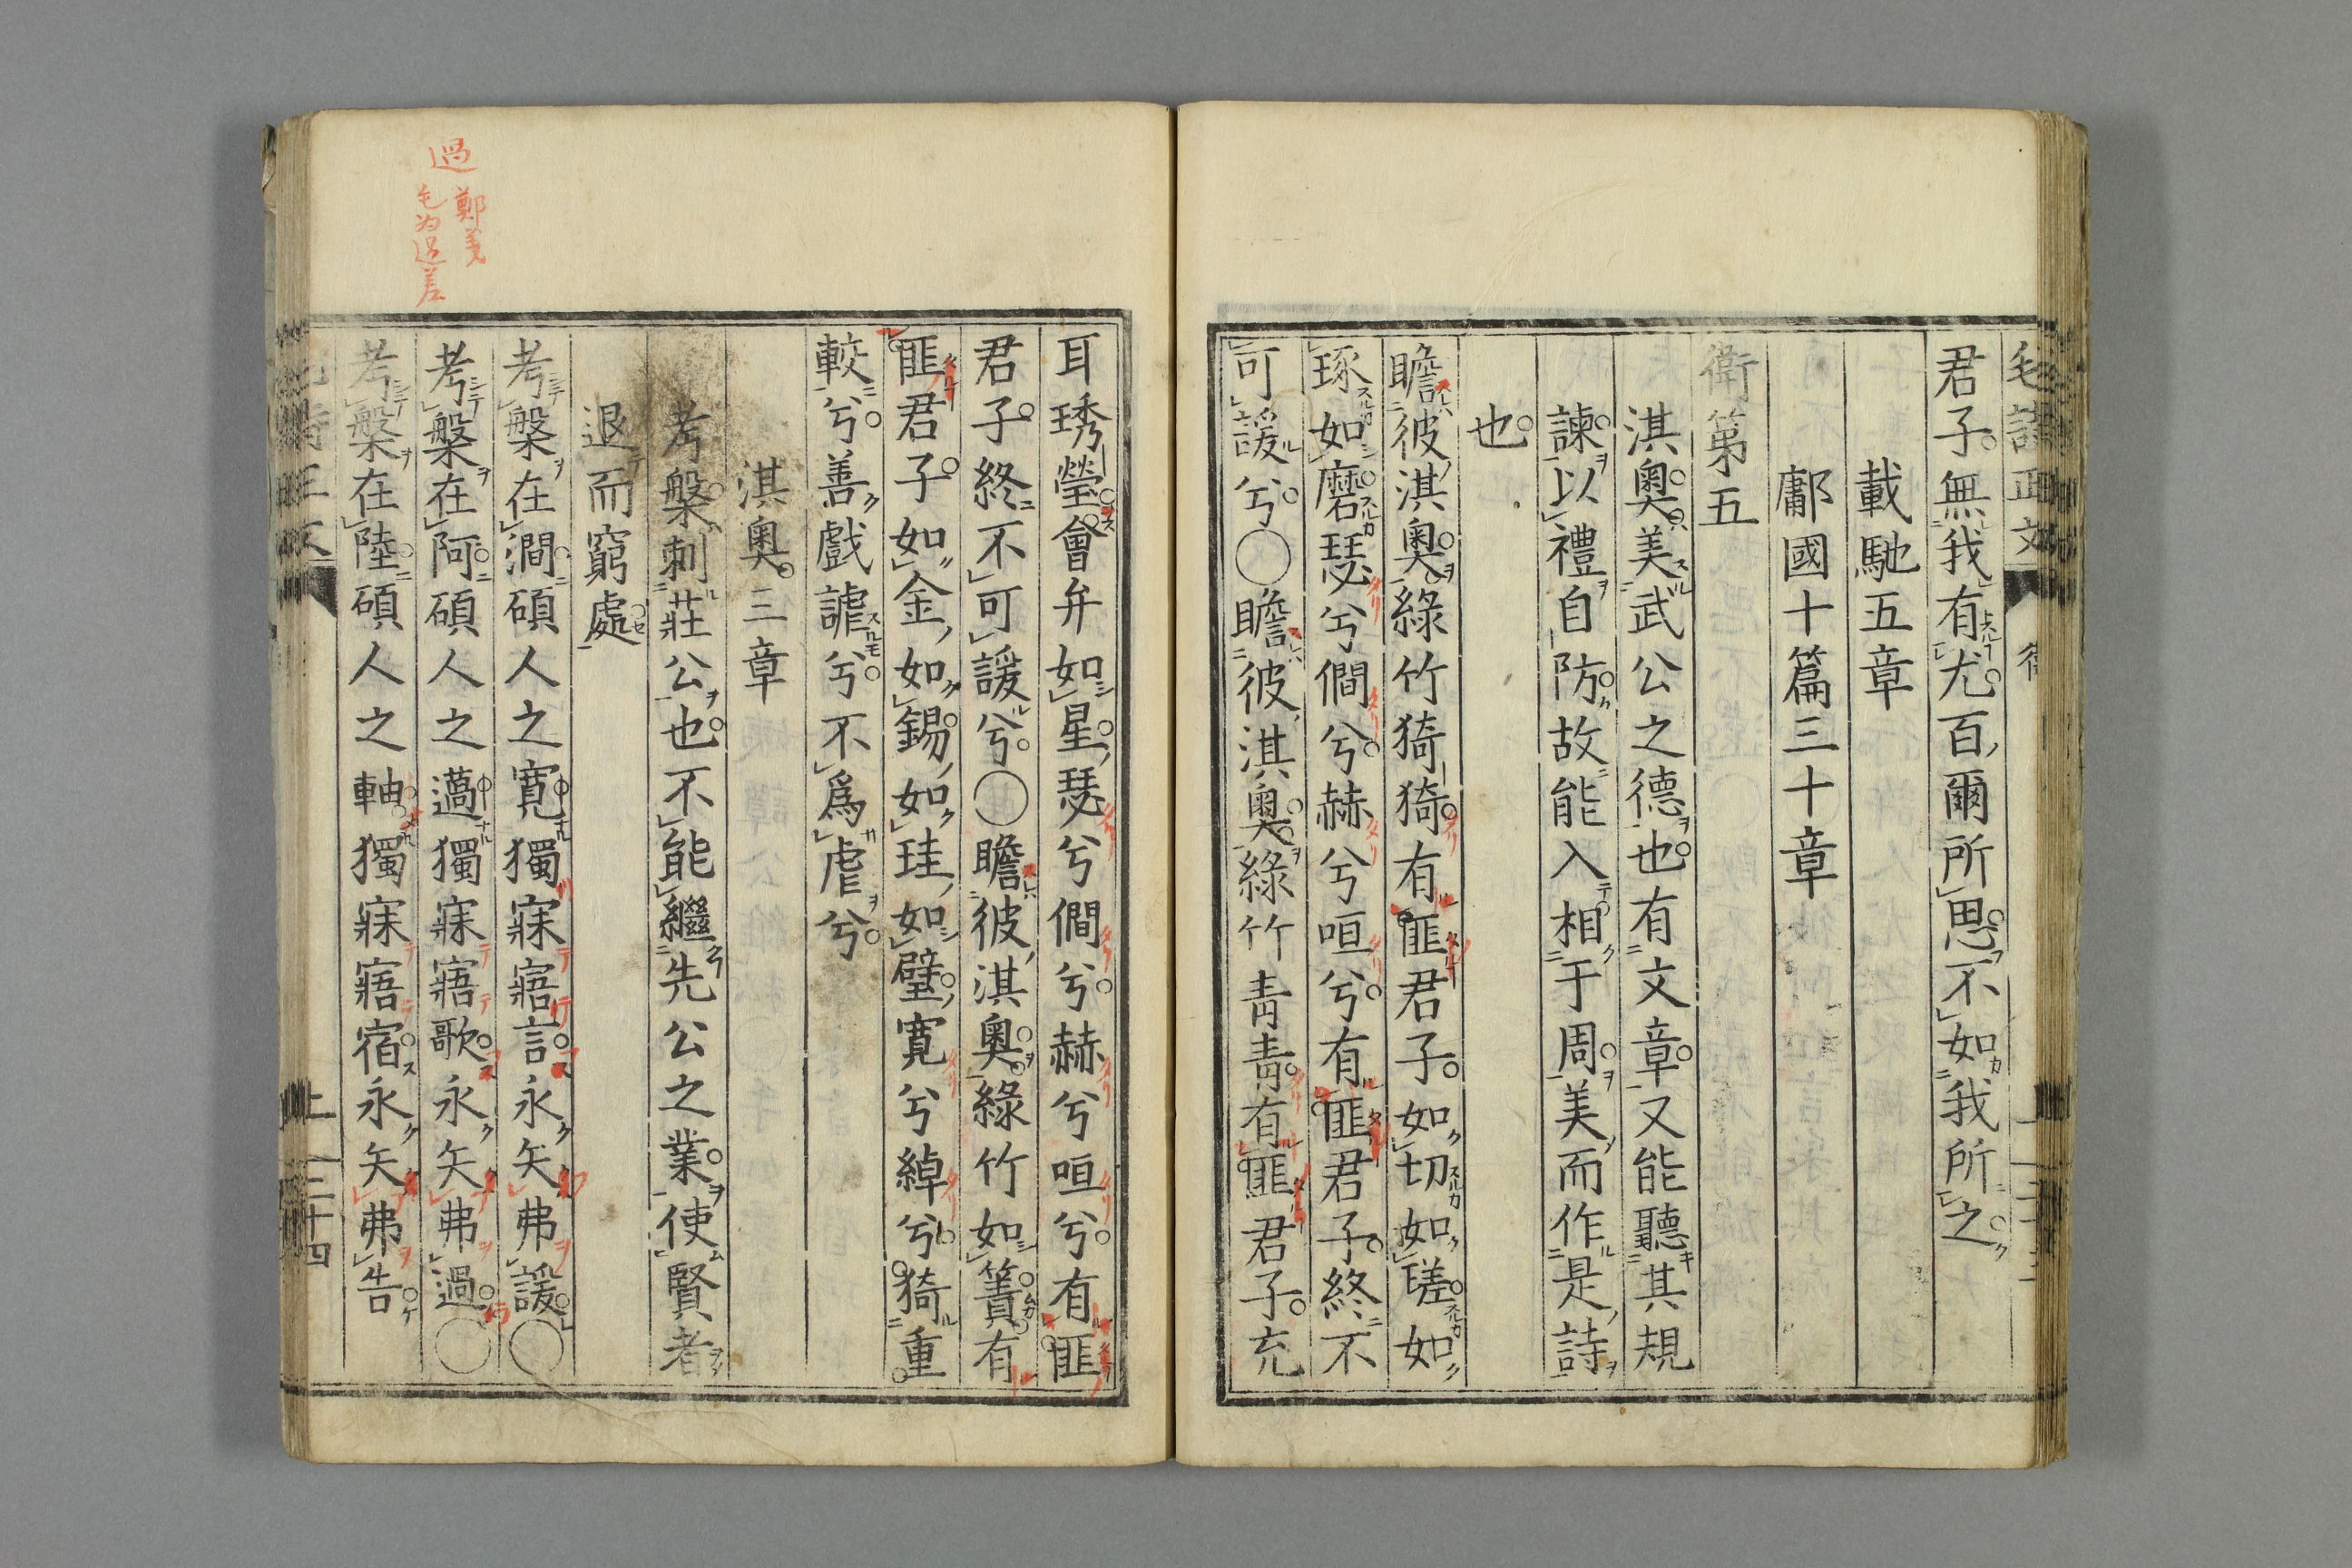 毛詩正文
君子無我有尤百爾所思不如我所之
載馳五章
鄘國十篇三十章
衛第五
淇奧美武公之德也有文章又能聽其規
諫以禮自防故能入相于周美而作是詩
也
瞻彼淇奧綠竹猗猗有匪君子如切如瑳如
琢如磨瑟兮僩兮赫兮咺兮有匪君子終不
可諼兮○瞻彼淇奧綠竹青青有匪君子充
耳琇瑩會弁如星瑟兮僩兮赫兮咺兮有匪
君子終不可諼兮○瞻彼淇奧綠竹如簀有
匪君子如金如錫如珪如璧寬兮綽兮猗重
較兮善戲謔兮不爲虐兮
淇奧三章
考槃刺莊公也不能繼先公之業使賢者
退而窮處
考槃在澗碩人之寬獨寐寤言永矢弗諼○
考槃在阿碩人之薖獨寐寤歌永矢弗過○
考槃在陸碩人之軸獨寐寤宿永矢弗告
上 三十四
過
鄭義
毛为過差